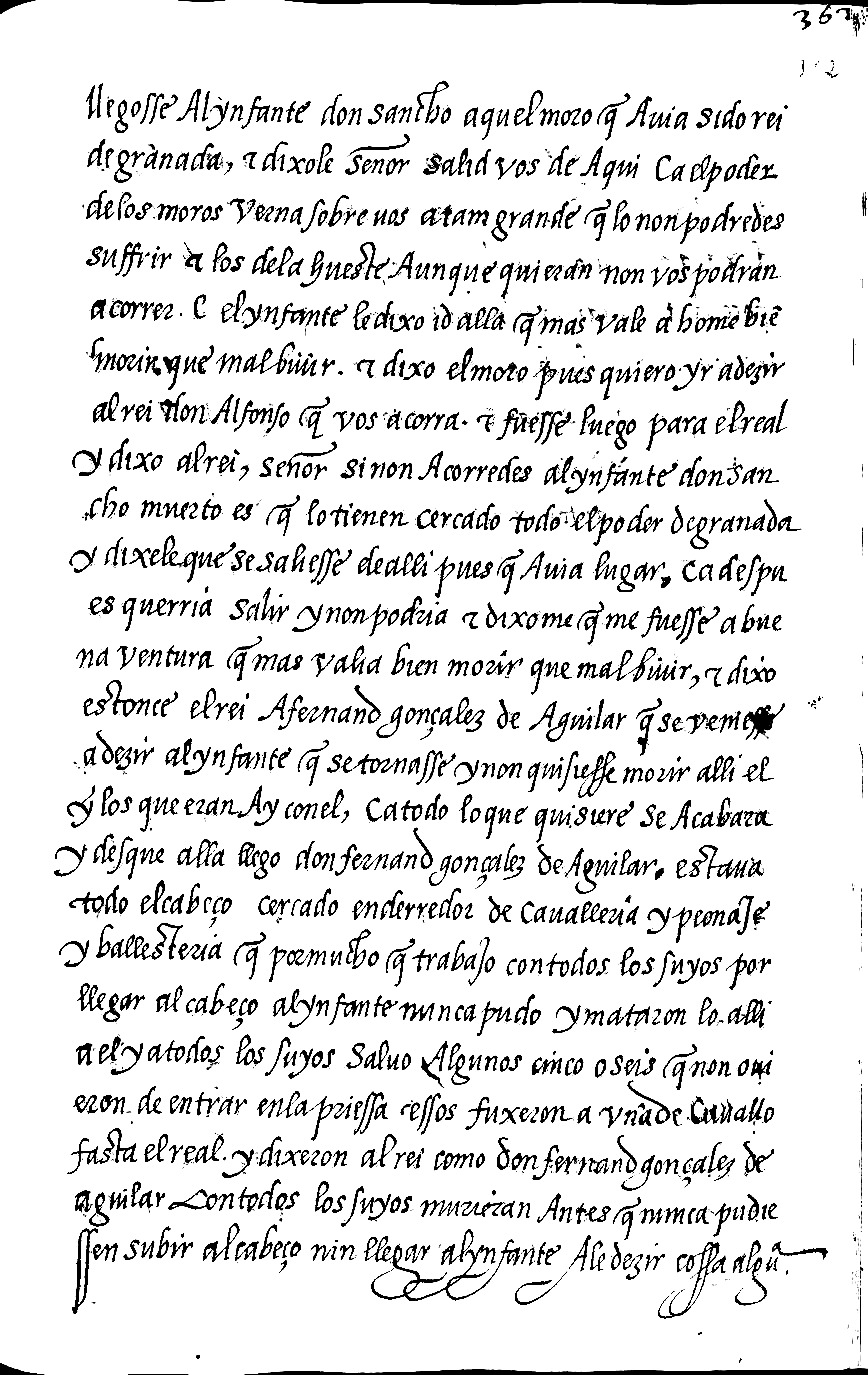 362
llegosse Al ynfante don sancho aquel moro q̃ Auia sido rei
de granada, τ dixole Señor salid vos de Aqui Ca el poder
de los moros verna sobre uos atam grande q̃ lo non podredes
suffrir τ los dela hueste Aunque quieran non vos podran
acorrer. E el ynfante le dixo id alla q̃ mas vale a home biẽ
morir que mal biuir. τ dixo el moro pues quiero yr a dezir
al rei don Alfonso q̃ vos acorra. τ fuesse luego para el real
y dixo al rei, señor si non Acorredes al ynfante don San
cho muerto es q̃ lo tienen cercado todo el poder de granada
y dixele que se saliesse de alli pues q̃ Auia lugar, ca despu
es querria salir y non podria τ dixome q̃ me fuesse a bue
na ventura q̃ mas valia bien morir que mal biuir, τ dixo
estonce el rei A fernand gonçalez de Aguilar q̃ se veniesse
a dezir al ynfante q̃ se tornasse y non quisiesse morir alli el
y los que eran Ay con el, Ca todo lo que quisiere se Acabara
y desque alla llego don fernand gonçalez de Aguilar, estaua
todo el cabeço cercado enderredor de Caualleria y peonaje
y ballesteria q̃ por mucho q̃ trabajo con todos los suyos por
llegar al cabeço al ynfante nunca pudo y mataron lo alli
a el y a todos los suyos Saluo Algunos cinco o seis q̃ non oui
eron de entrar en la priessa τ essos fuxeron a vña de Cauallo
fasta el real. y dixeron al rei como don fernand gonçalez de
aguilar con todos los suyos murieran Antes q̃ nunca pudie
ssen subir al cabeço nin llegar al ynfante A le dezir cossa algũ.